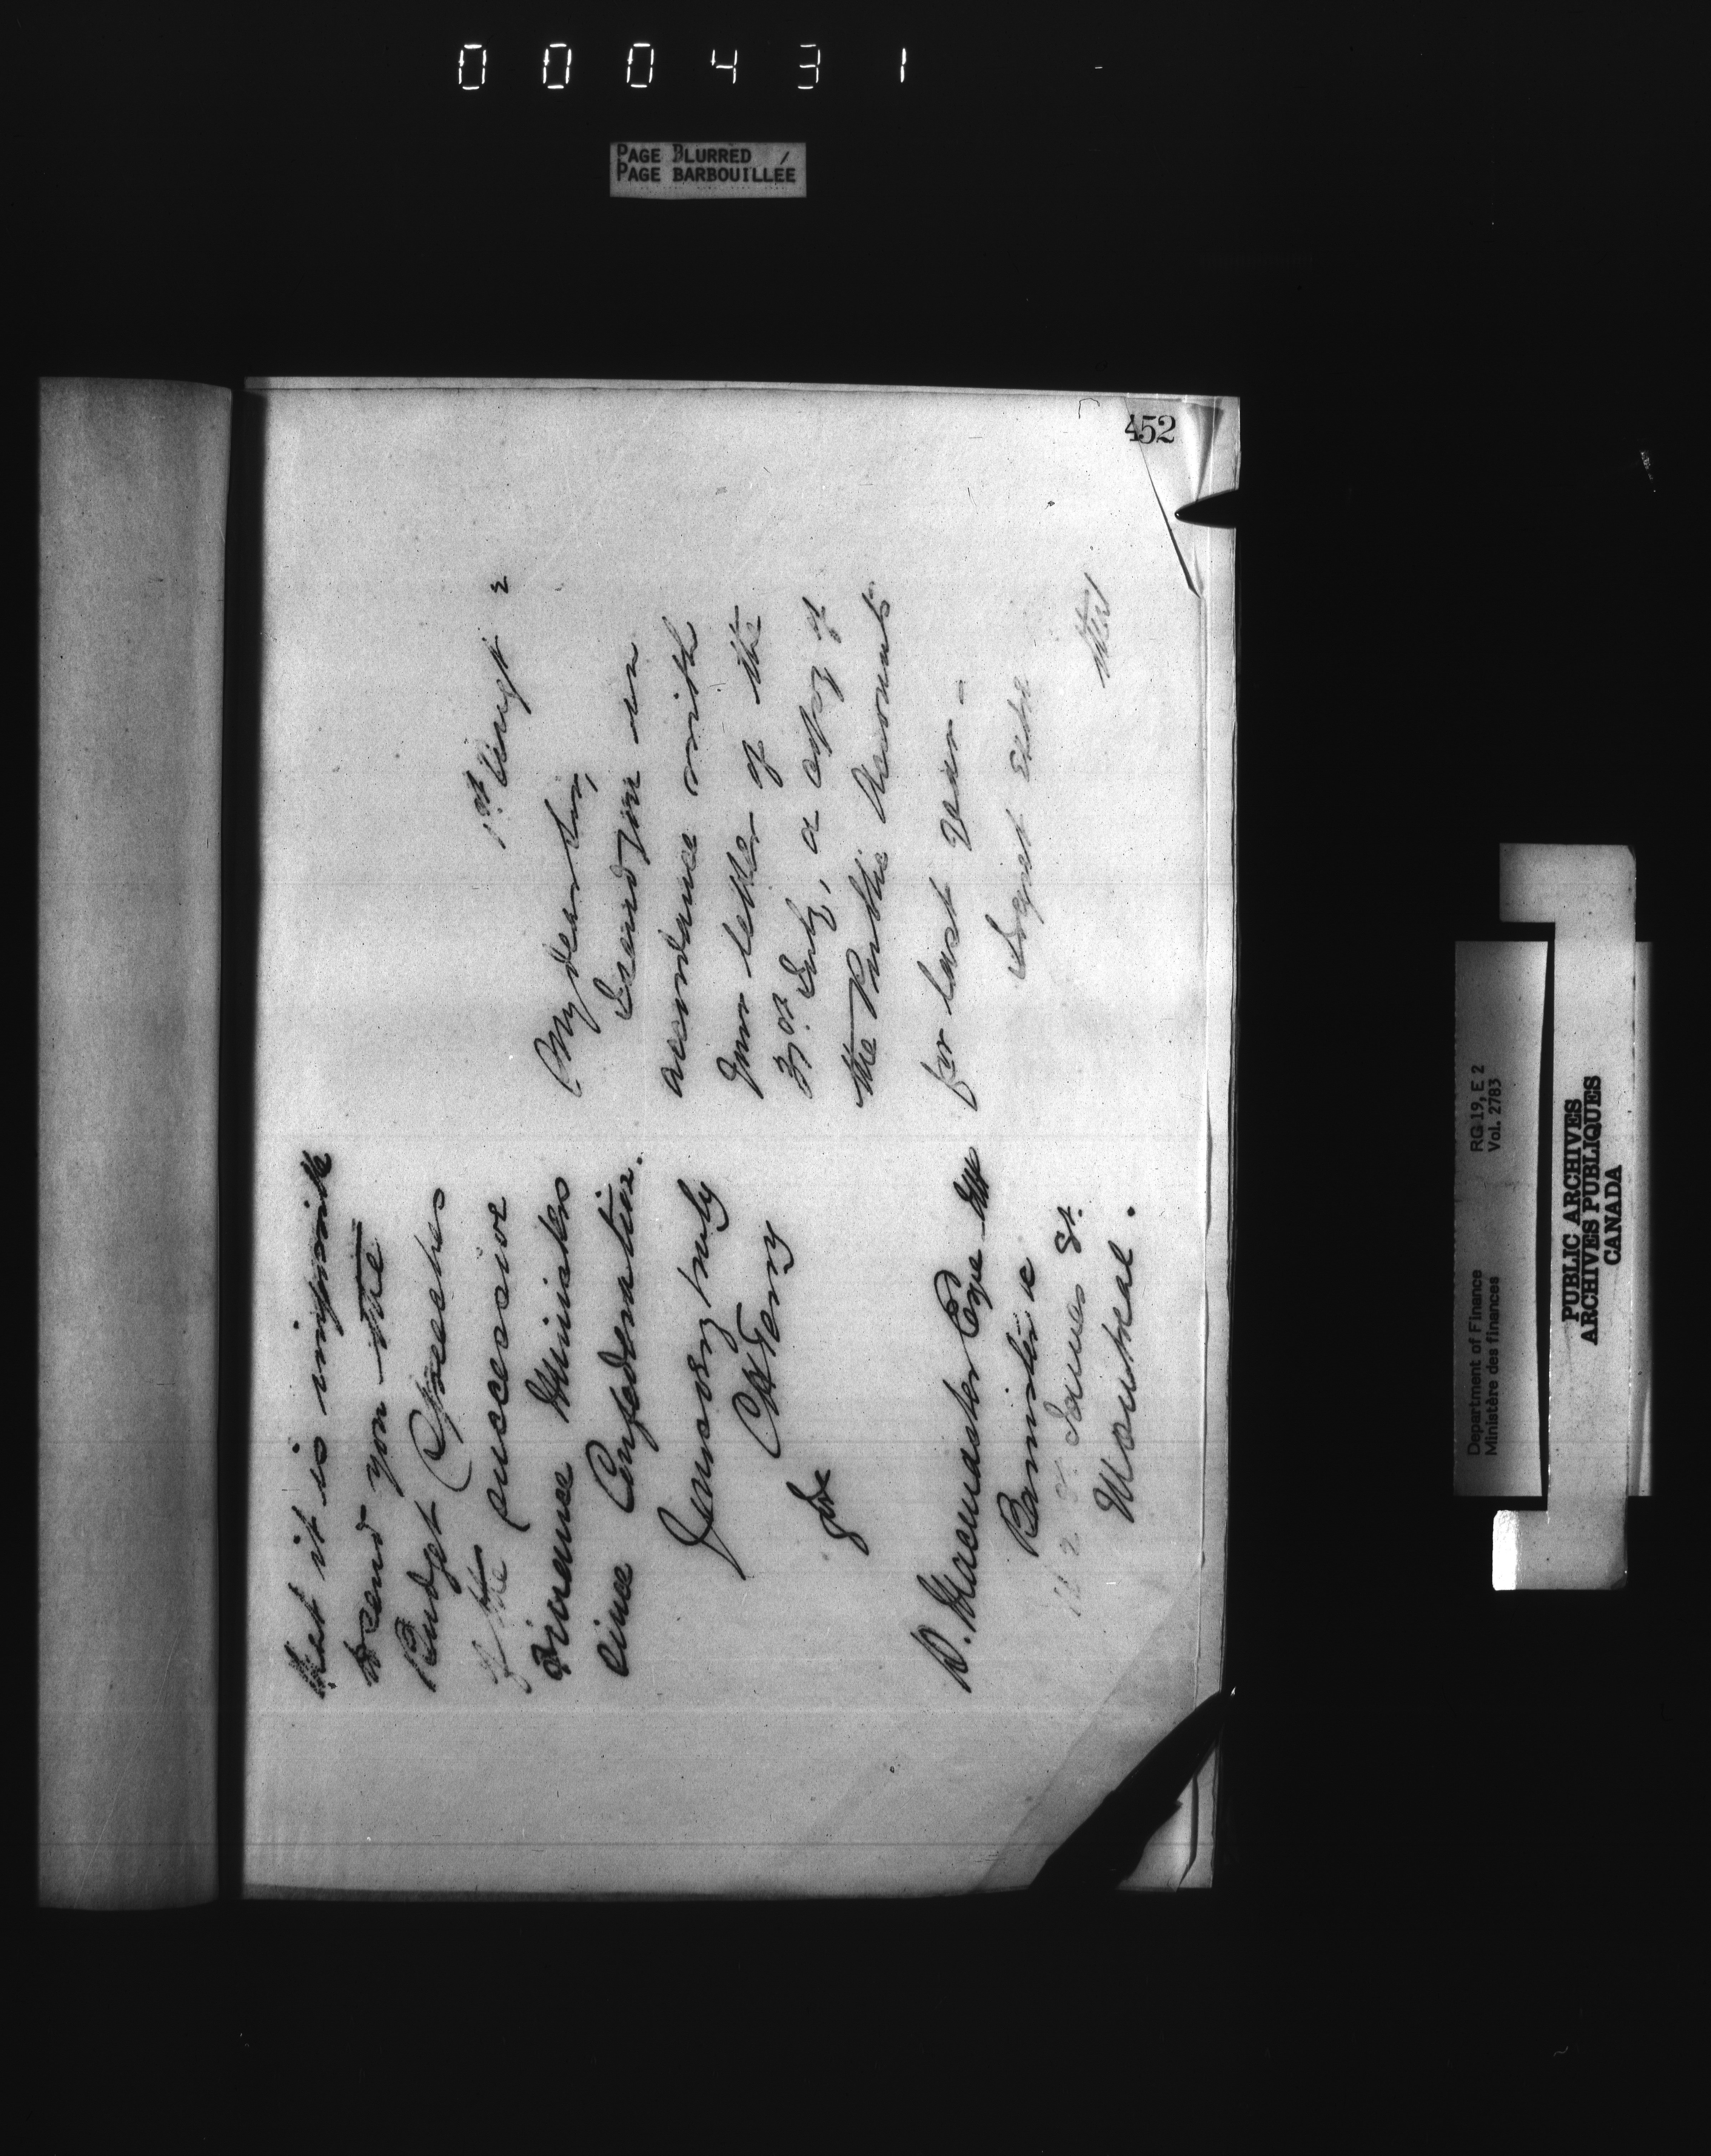 000431
PAGE BLURRED
PAGE BARBOUILLÉE
452
that it is impossible
to send you the
Budget Speeches
of the successive
Finance Ministers
since Confederation.
Yours very truly
D. Macmaster Esqe
Barrister &c
St. James St.
Montreal.
1st Augt 2
My dear Sir,
I send you in
accordance with
your letter of the
31st July, a copy of
the Public Accounts
for last year -
I regret extra
that
Department of Finance
Ministère des finances
RG 19, E 2
Vol. 2783
PUBLIC ARCHIVES
ARCHIVES PUBLIQUES
CANADA